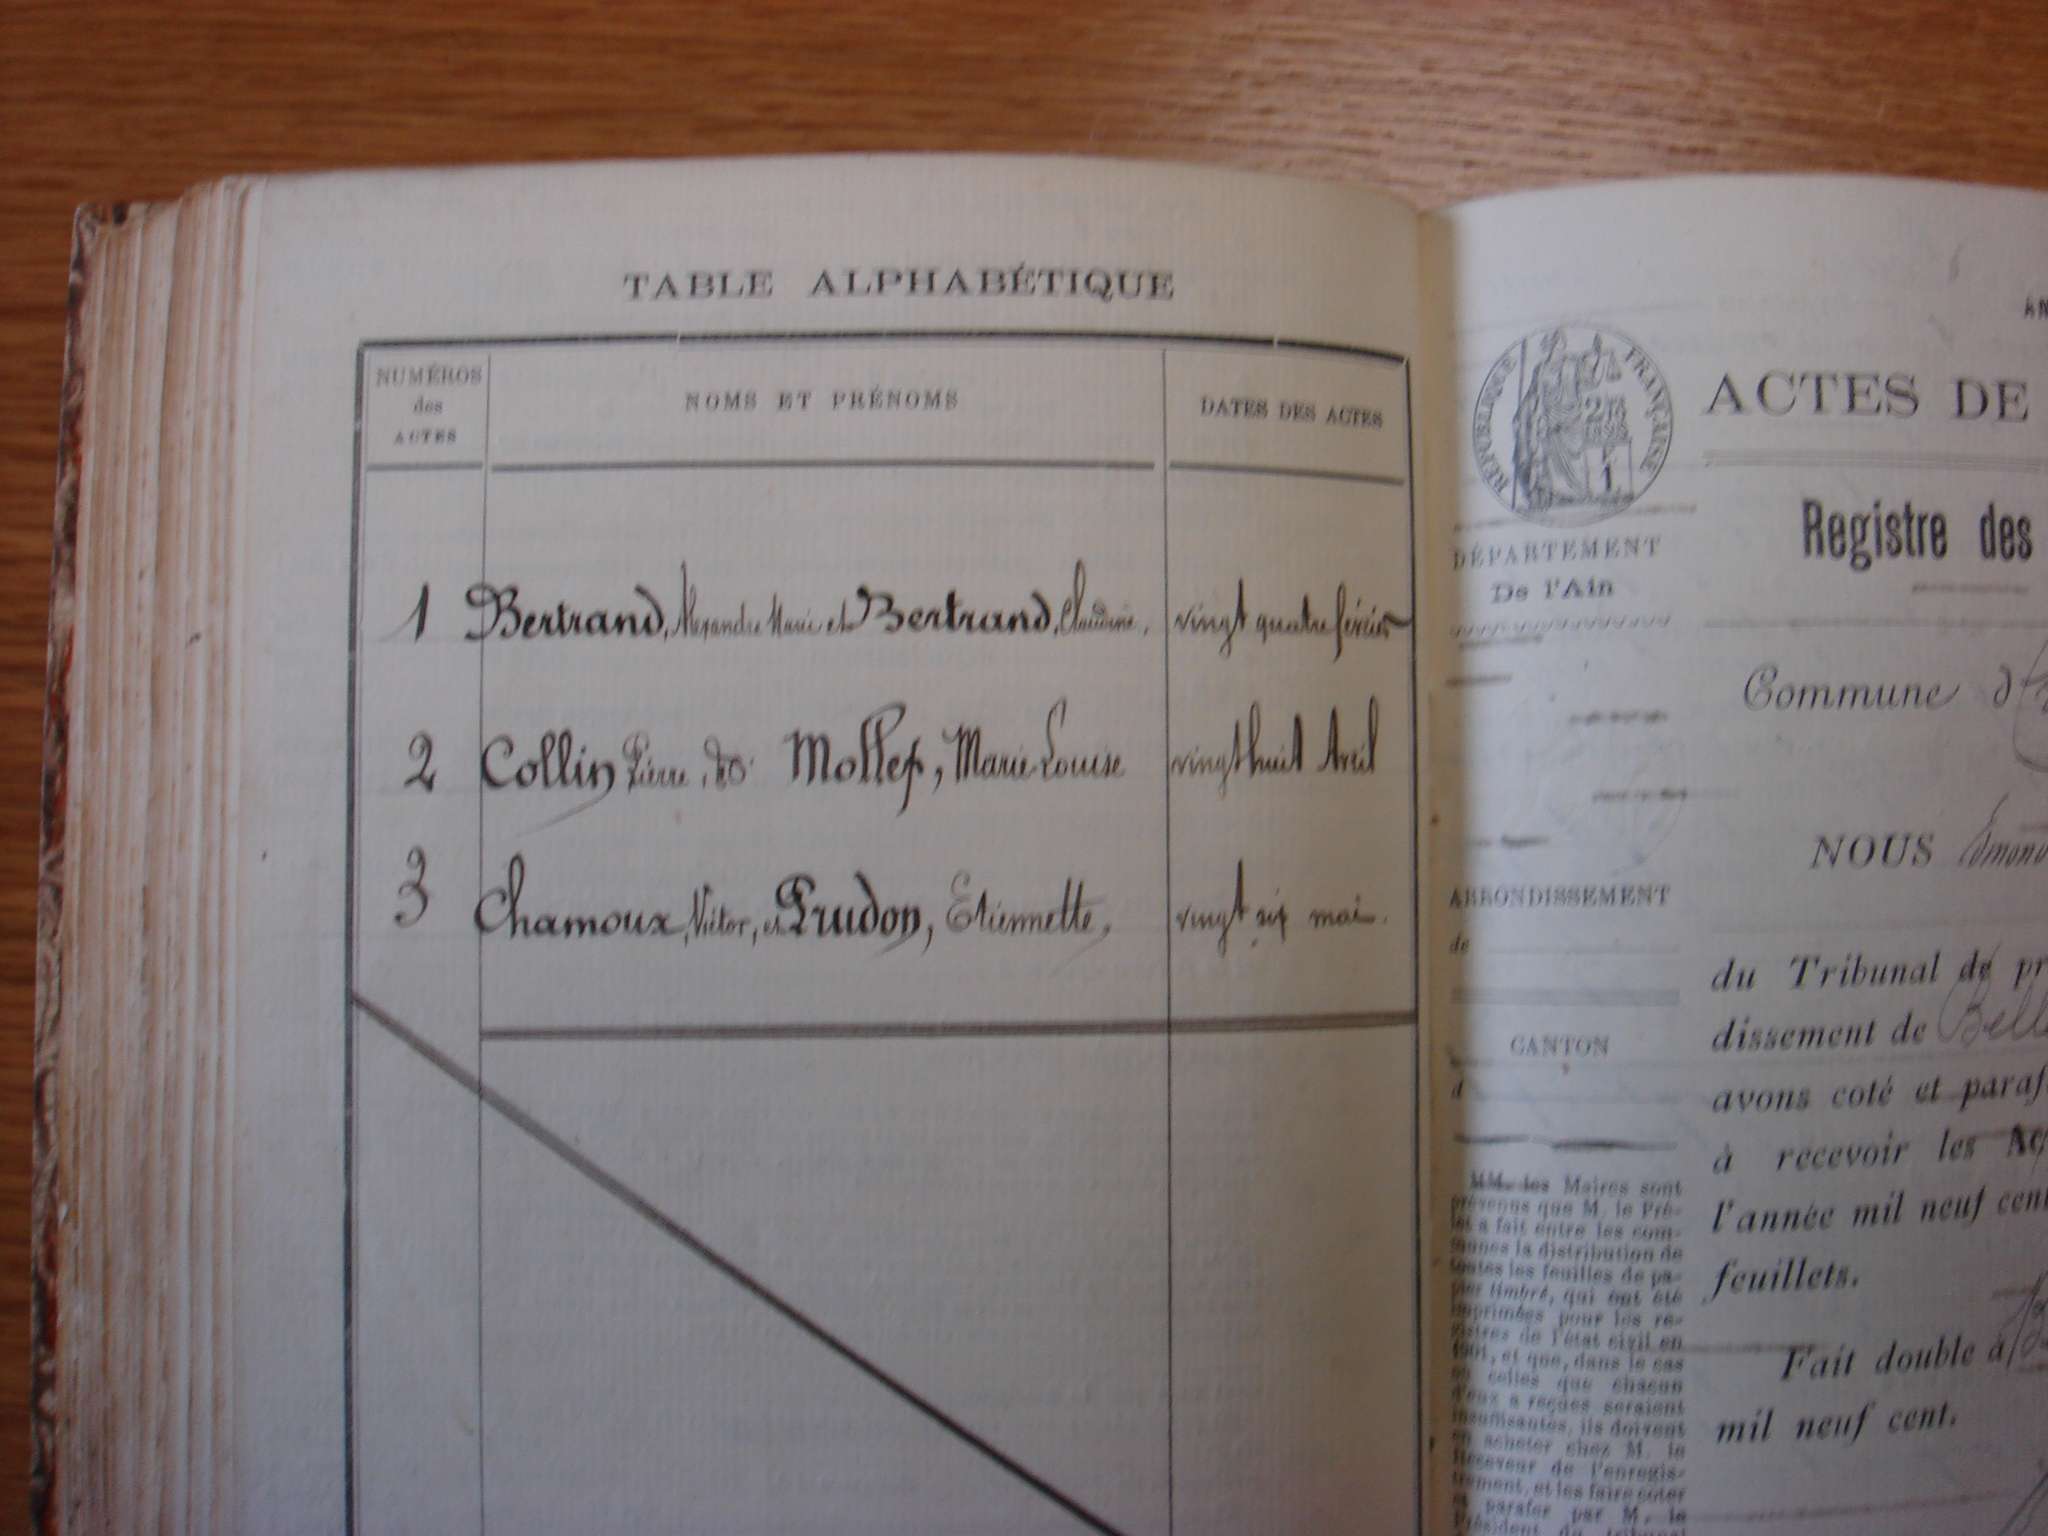 TABLE ALPHABÉTIQUE
NUMÉROS
des
ACTES
NOMS ET PRÉNOMS
DATES DES ACTES
1 Bertrand, Alexandre Marie et Bertrand, Claudine, vingt quatre février
2 Collin Pierre, et Marie Louise vingt huit Avril
3 Chamoux, Victor, et Prudon, Etiennette, vingt six mai.
RÉPUBLIQUE FRANÇAISE
ACTES DE
Registre des
DÉPARTEMENT
De l'Ain
Commune d'
NOUS Edmond
ARRONDISSEMENT
de
du Tribunal de pr
dissement de Bell
CANTON
d
avons coté et paraf
à recevoir les Ac
l'année mil neuf cent
feuillets.
Fait double à
mil neuf cent.
MM. les Maires sont
prévenus que M. le Pré-
fet a fait entre les com-
munes la distribution de
toutes les feuilles de pa-
pier timbré, qui ont été
imprimées pour les re-
gistres de l'état civil en
1901, et que, dans le cas
où celles que chacun
d'eux a reçues seraient
insuffisantes, ils doivent
en acheter chez M. le
Receveur de l'enregis-
trement, et les faire coter
et parafer par M. le
Président du tribunal